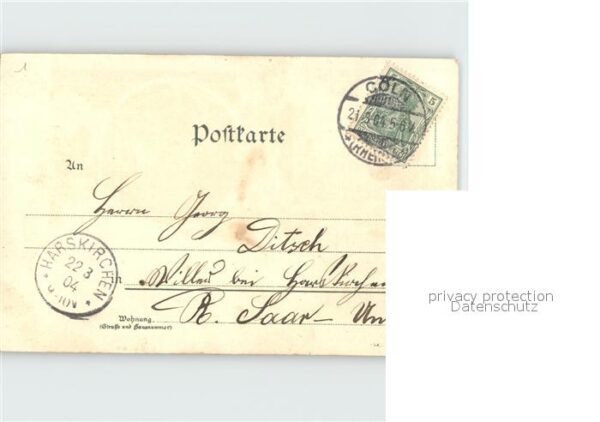 1
CÖLN
5
21.3.04.5-6N.
* (RHEIN)
Postkarte
An
Herrn Georg
Ditsch
in Willer bei Harskirchen
R. Saar-Un
Wohnung
(Straße und Hausnummer)
* HARSKIRCHEN *
22 3
04
privacy protection
Datenschutz